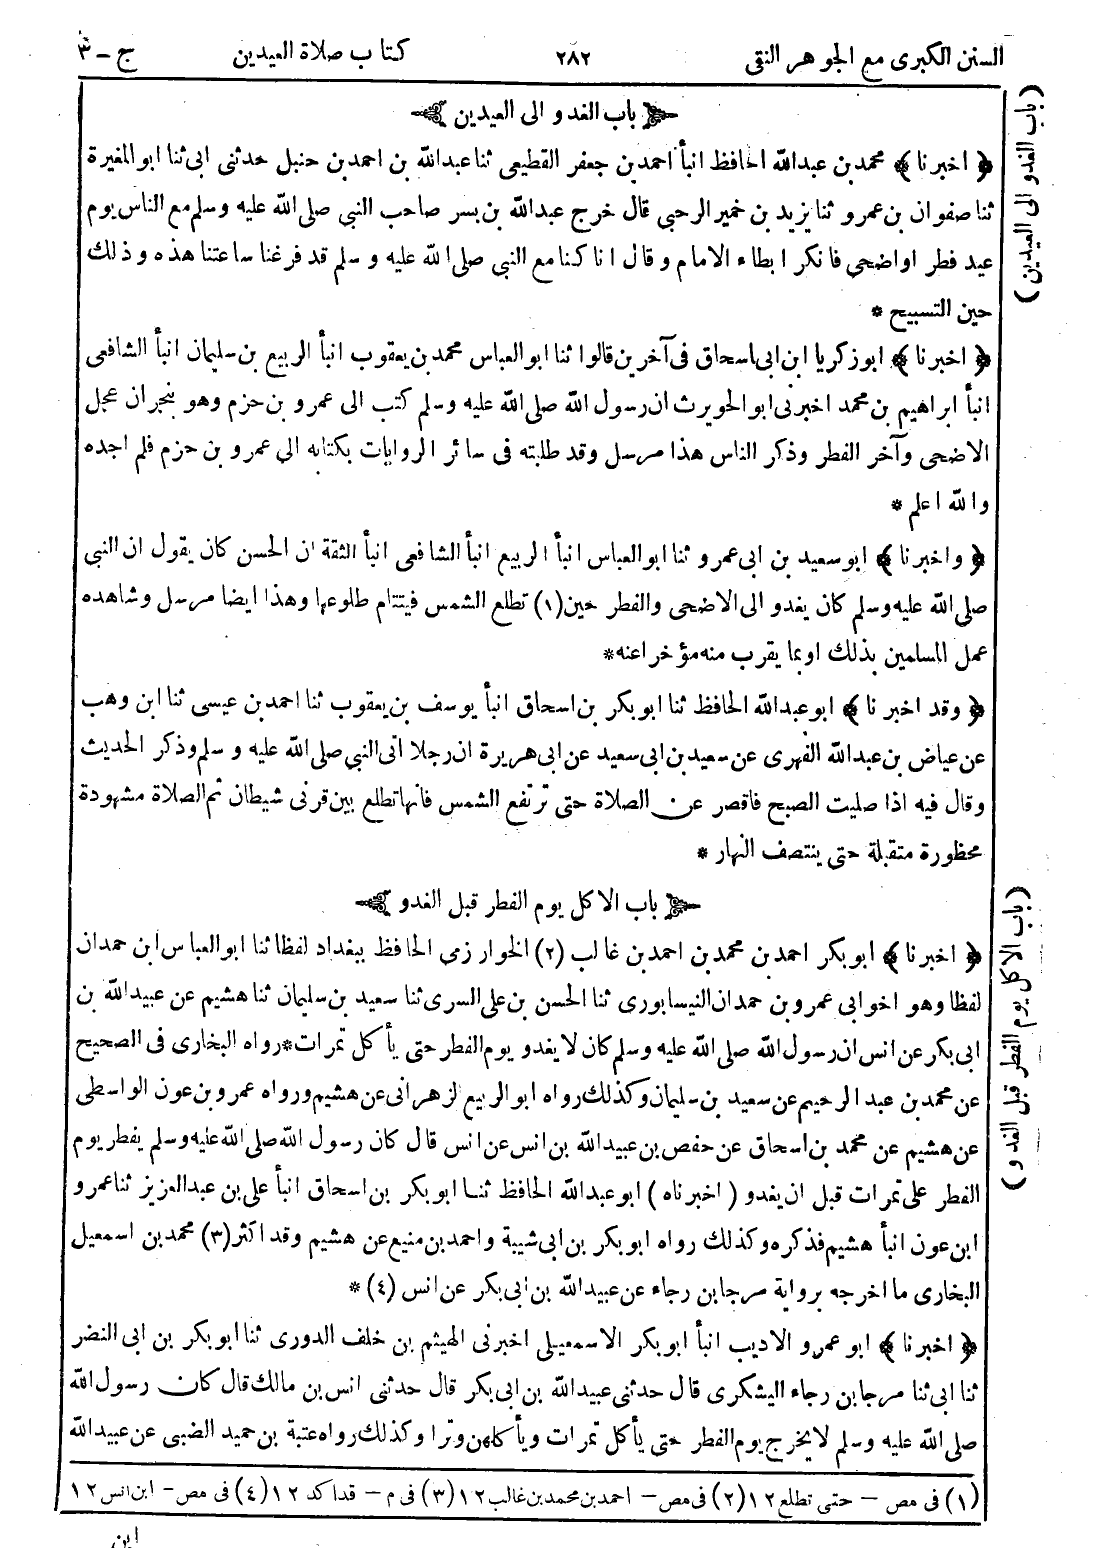 السنن الكبرى مع الجوهر النقى ٢٨٢ كتاب صلاة العيدين ج - ٣
باب الغدو الى العيدين
﴿ اخبرنا ﴾ محمد بن عبدالله الحافظ انبأ احمد بن جعفر القطيعى ثنا عبدالله بن احمد بن حنبل حدثنى ابى ثنا ابوالمغيرة
ثنا صفوان بن عمرو ثنا يزيد بن خمير الرحبى قال خرج عبدالله بن بسر صاحب النبى صلى الله عليه وسلم مع الناس يوم
عيد فطر او اضحى فانكر ابطاء الامام وقال انا كنا مع النبى صلى الله عليه وسلم قد فرغنا ساعتنا هذه وذلك
حين التسبيح *
﴿ اخبرنا ﴾ ابوزكريا ابن ابى اسحاق فى آخرين قالوا ثنا ابوالعباس محمد بن يعقوب انبأ الربيع بن سليمان انبأ الشافعى
انبأ ابراهيم بن محمد اخبرنى ابوالحويرث ان رسول الله صلى الله عليه وسلم كتب الى عمرو بن حزم وهو بنجران عجل
الاضحى وآخر الفطر وذكر الناس هذا مرسل وقد طلبته فى سائر الروايات بكتابه الى عمرو بن حزم فلم اجده
والله اعلم *
﴿ واخبرنا ﴾ ابوسعيد بن ابى عمرو ثنا ابوالعباس انبأ الربيع انبأ الشافعى انبأ الثقة ان الحسن كان يقول ان النبى
صلى الله عليه وسلم كان يغدو الى الاضحى والفطر حين (١) تطلع الشمس فيتتام طلوعها وهذا ايضا مرسل وشاهده
عمل المسلمين بذلك او بما يقرب منه مؤخرا عنه *
﴿ وقد اخبرنا ﴾ ابوعبدالله الحافظ ثنا ابوبكر بن اسحاق انبأ يوسف بن يعقوب ثنا احمد بن عيسى ثنا ابن وهب
عن عياض بن عبدالله الفهرى عن سعيد بن ابى سعيد عن ابى هريرة ان رجلا اتى النبى صلى الله عليه وسلم وذكر الحديث
وقال فيه اذا صليت الصبح فاقصر عن الصلاة حتى ترتفع الشمس فانها تطلع بين قرنى شيطان ثم الصلاة مشهودة
محظورة متقبلة حتى ينتصف النهار *
باب الاكل يوم الفطر قبل الغدو
﴿ اخبرنا ﴾ ابوبكر احمد بن محمد بن احمد بن غالب (٢) الخوارزمى الحافظ ببغداد لفظا ثنا ابوالعباس ابن حمدان
لفظا وهو اخو ابى عمرو بن حمدان النيسابورى ثنا الحسن بن على السرى ثنا سعيد بن سليمان ثنا هشيم عن عبيدالله بن
ابى بكر عن انس ان رسول الله صلى الله عليه وسلم كان لا يغدو يوم الفطر حتى يأكل تمرات * رواه البخارى فى الصحيح
عن محمد بن عبد الرحيم عن سعيد بن سليمان وكذلك رواه ابوالربيع الزهرانى عن هشيم ورواه عمرو بن عون الواسطى
عن هشيم عن محمد بن اسحاق عن حفص بن عبيدالله بن انس عن انس قال كان رسول الله صلى الله عليه وسلم يفطر يوم
الفطر على تمرات قبل ان يغدو ( اخبرناه ) ابوعبدالله الحافظ ثنا ابوبكر بن اسحاق انبأ على بن عبدالعزيز ثنا عمرو
ابن عون انبأ هشيم فذكره وكذلك رواه ابوبكر بن ابى شيبة واحمد بن منيع عن هشيم وقد اكثر (٣) محمد بن اسمعيل
البخارى ما اخرجه برواية مرجا بن رجاء عن عبيدالله بن ابى بكر عن انس (٤) *
﴿ اخبرنا ﴾ ابوعمرو الاديب انبأ ابوبكر الاسمعيلى اخبرنى الهيثم بن خلف الدورى ثنا ابوبكر بن ابى النضر
ثنا ابى ثنا مرجا بن رجاء اليشكرى قال حدثنى عبيدالله بن ابى بكر قال حدثنى انس بن مالك قال كان رسول الله
صلى الله عليه وسلم لا يخرج يوم الفطر حتى يأكل تمرات ويأكلهن وترا وكذلك رواه عتبة بن حميد الضبى عن عبيدالله
(١) فى مص - حتى تطلع ١٢ (٢) فى مص - احمد بن محمد بن غالب ١٢ (٣) فى م - قد اكد ١٢ (٤) فى مص - ابن انس ١٢
ابن
( باب الغدو الى العيدين )
( باب الاكل يوم الفطر قبل الغدو )